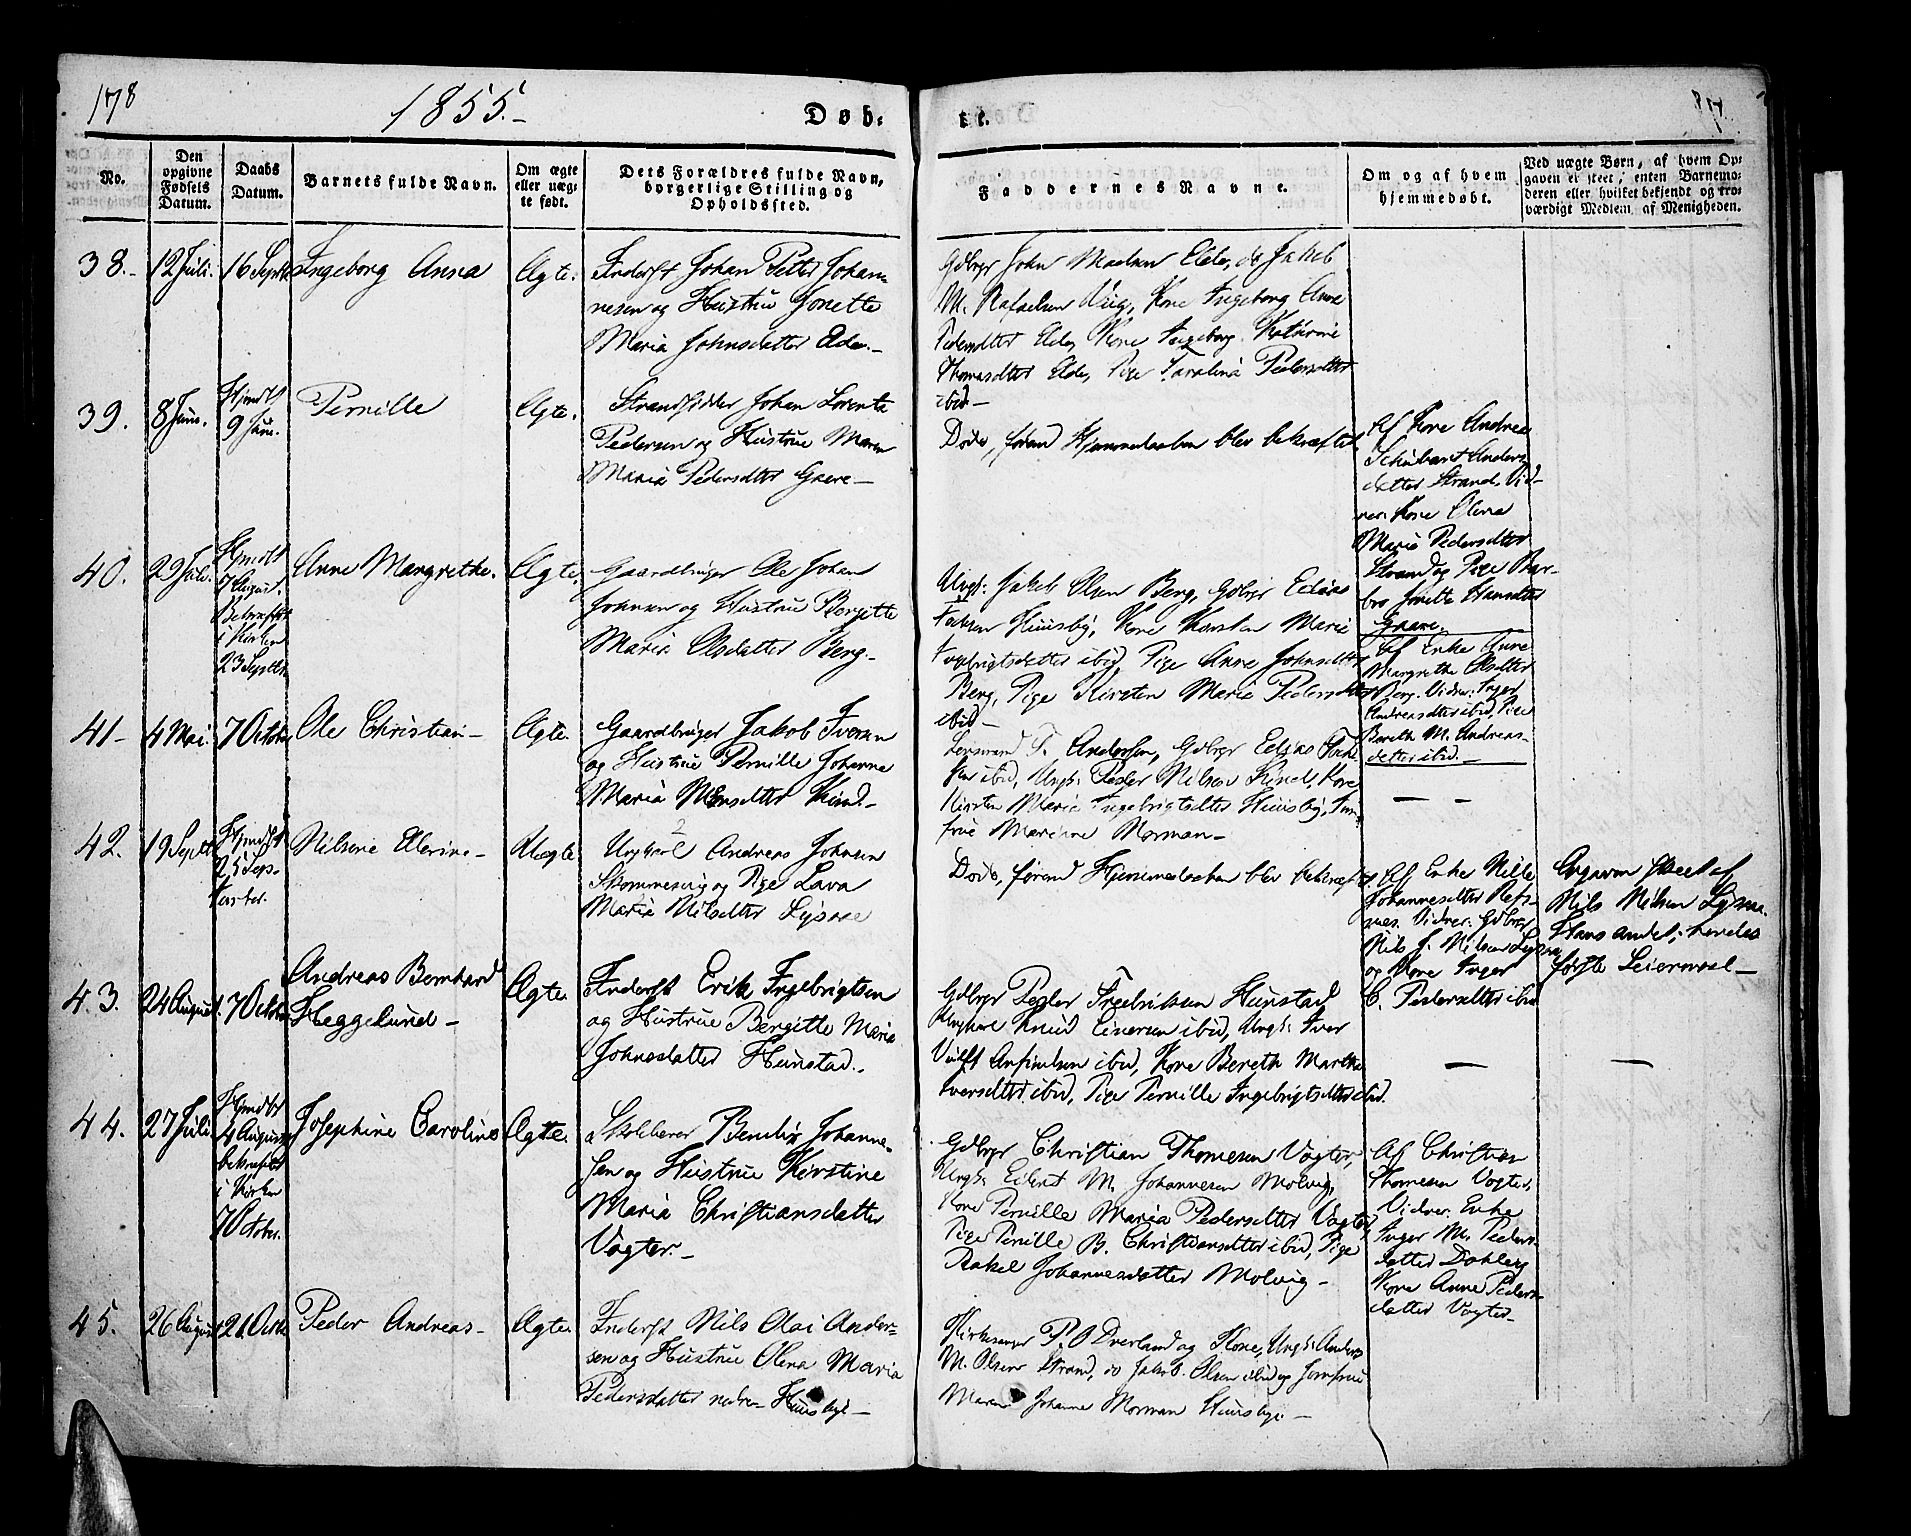 178
1855.-
Døb-
te.
No.
Den opgivne Fødsels Datum.
Daabs Datum.
Barnets fulde Navn.
Om ægte eller uægte født.
Dets Forældres fulde Navn, borgerlige Stilling og Opholdssted.
Faddernes Navne.
Om og af hvem hjemmedøbt.
Ved uægte Børn, af hvem Opgaven er skeet; enten Barnemoderen eller hvilket bekjendt og troværdigt Medlem af Menigheden.
38.-
12 Juli.
16 Septbr
Ingeborg Anna
Ægte.
Inderst Johan Petter Johan-
nesen og Hustrue Jonette
Maria Johnsdatter Elde.-
Gdbrgr John Madsen Elde, do Jakob
M. Rafaelsen Viig, Kone Ingeborg Anne
Pedersdtter Elde, Kone Ingeborg Kathrine
Thomasdtter Elde, Pige Karolina Pedersdtter
ibid-
39.
8 Juni.
Hjmdbt
9 Juni.
Pernille
Ægte.
Strandsidder Johan Lorents
Pedersen og Hustrue Maren
Maria Pedersdtter Gaare-
Døde, førend Hjemmedaaben blev bekræftet.
Af Kone Andrea
Schubart Anders-
datter Strand, Vid-
ner: Kone Olina
Maria Pedersdtter
Strand og Pige Bar-
bro Jonette Hansdtter
Gaare.
40.
29 Juli.
Hjmdbt
7 August.
Bekræftet
i Kirken
23 Septbr.
Anne Margrethe.
Ægte.
Gaardbruger Ole Johan
Johnsen og Hustrue Borgitte
Maria Olsdatter Berg.-
Ungk: Jakob Olsen Berg, Gdbrgr Edias
Falksen Huusby, Kone Karsten Marie
Ingebrigtsdatter ibid, Pige Anne Johnsdtter
Berg, Pige Kirsten Maria Pedersdtter
ibid-
Af Enke Anne
Margrethe Olsdtter
Berg. Vidner: Inger
Andreasdtter ibid, Pige
Bereth M. Andreas-
datter ibid.-
41-
4 Mai.
7 Octobr
Ole Christian-
Ægte.
Gaardbruger Jakob Iversen
og Hustrue Pernille Johanne
Maria Monsdtter Kind-
Lensmand T. Andersen, Gdbrgr Edias Falk-
sen ibid, Ungk: Peder Nilsen Kind, Kone
Kirsten Maria Ingebrigtsdtter Huusby, Jom-
frue Marianne Norman-
42.
19 Septbr
Hjmdbt
25 Sep-
tember.
Nilsine Elerine-
Uægte
Ungkarl Andreas Johnsen
Skommesvig og Pige Lava
Maria Nilsdtter Lysnæs
Døde, førend Hjemmedaaben blev bekræftet.
Af Enke Nille
Johannesdtter Refs-
næs. Vidner: Gdbrgr
Nils J. Nilsen Lysnæs
og Kone Inger
C. Pedersdtter ibid
Angaven skeet af
Nils Nilsen Lysnæs.
Hans andet; hendes
første Leiermaal-
43.
24 August.
7 Octobr
Andreas Bernhard
Heggelund-
Ægte.
Inderst Erik Ingebrigtsen
og Hustrue Bergitte Maria
Johnsdatter Hunstad.-
Gdbrgr Peder Fredriksen Hunstad
Ungkarl Knud Einersen ibid, Ungk: Iver
Vulff Arfindsen ibid, Kone Bereth Marthe
Iversdtter ibid, Pige Pernille Ingebrigtsdtter ibid.
44.
27 Juli.
Hjmdbt
4 August
bekræftet
i Kirken
7 October.
Josephine Caroline
Ægte.
Skolelærer Bendix Johanne-
sen og Hustrue Kirstine
Maria Christiansdatter
Vogter.-
Gdbrgr Christian Thomesen Vogter,
Ungk: Eilert M. Johannesen Molvig
Kone Pernille Maria Pedersdtter Vogter,
Pige Pernille B. Christiansdtter ibid, Pige
Rakel Johannesdatter Molvig-
Af Christian
Thomesen Vogter,
Vidner: Enke
Inger M. Peders-
datter Dahlberg
Kone Anne Peders-
datter Vogter-
45.
26 August
21 Octbr
Peder Andreas-
Ægte.
Inderst Nils Olai Ander-
sen og Hustrue Olina Maria
Pedersdatter nedre Huusbye-
Kirkesanger P. Overland og Kone, Ungk: Anders
M. Olsen Strand, do Jakob Olsen ibid og Jomfrue
Maren Johanne Norman Huusbye.-